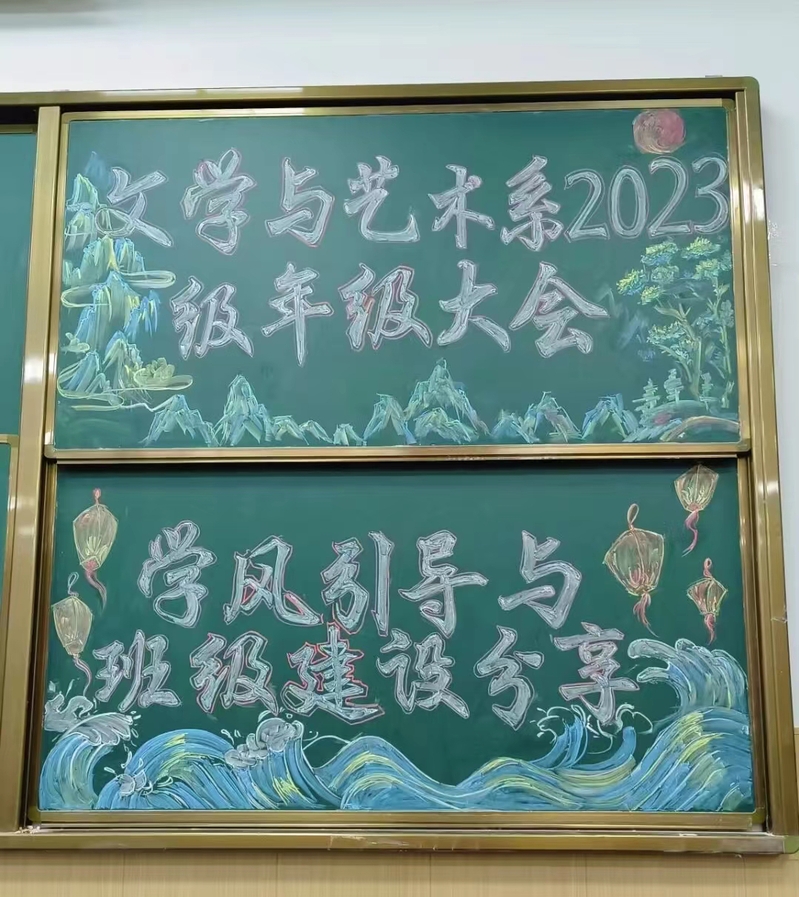 文学与艺术系2023
级年级大会
学风引导与
班级建设分享